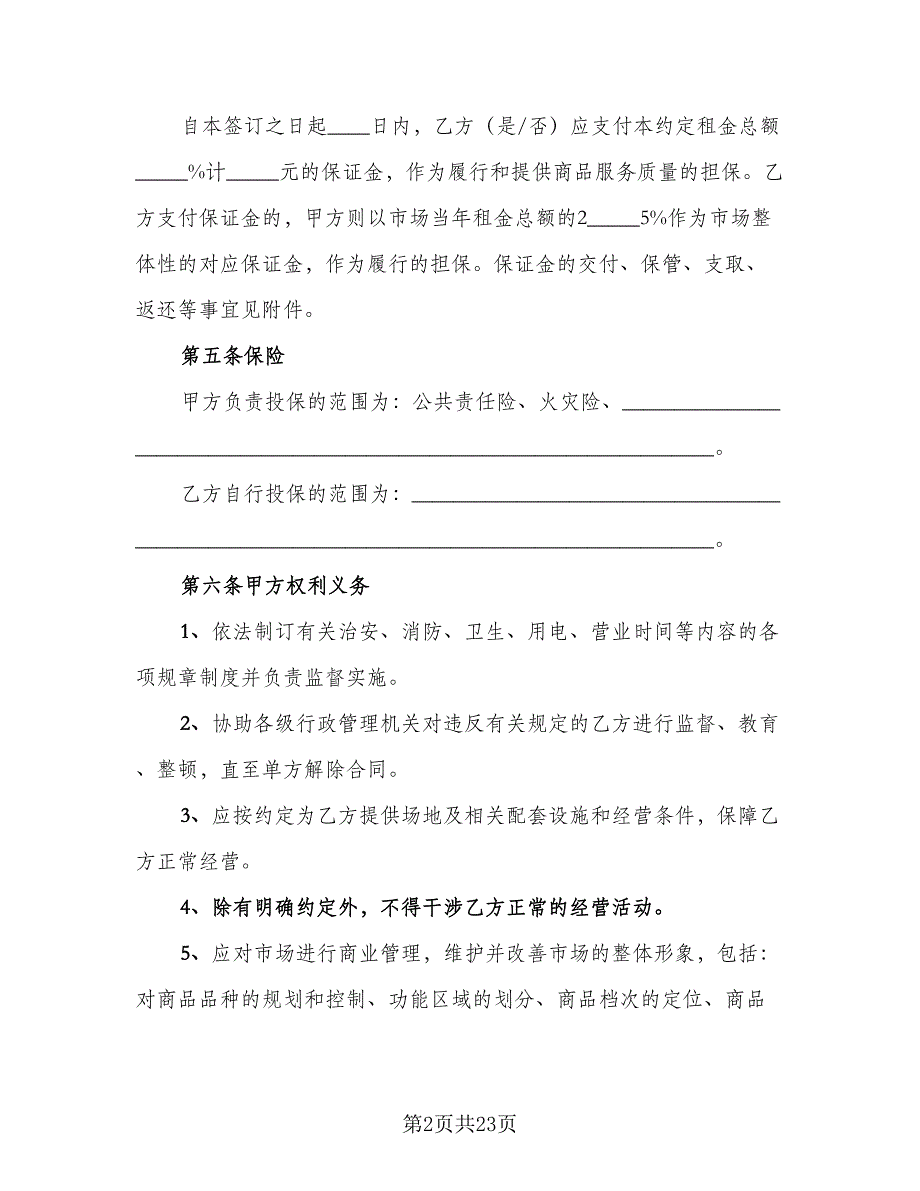 自本签订之日起____日内，乙方（是/否）应支付本约定租金总额
_____%计_____元的保证金，作为履行和提供商品服务质量的担保。乙
方支付保证金的，甲方则以市场当年租金总额的2_____5%作为市场整
体性的对应保证金，作为履行的担保。保证金的交付、保管、支取、
返还等事宜见附件。
第五条保险
甲方负责投保的范围为：公共责任险、火灾险、_______________
_______________________________________________________。
乙方自行投保的范围为：___________________________________
_______________________________________________________。
第六条甲方权利义务
1、依法制订有关治安、消防、卫生、用电、营业时间等内容的各
项规章制度并负责监督实施。
2、协助各级行政管理机关对违反有关规定的乙方进行监督、教育
、整顿，直至单方解除合同。
3、应按约定为乙方提供场地及相关配套设施和经营条件，保障乙
方正常经营。
4、除有明确约定外，不得干涉乙方正常的经营活动。
5、应对市场进行商业管理，维护并改善市场的整体形象，包括：
对商品品种的规划和控制、功能区域的划分、商品档次的定位、商品
第2页共23页